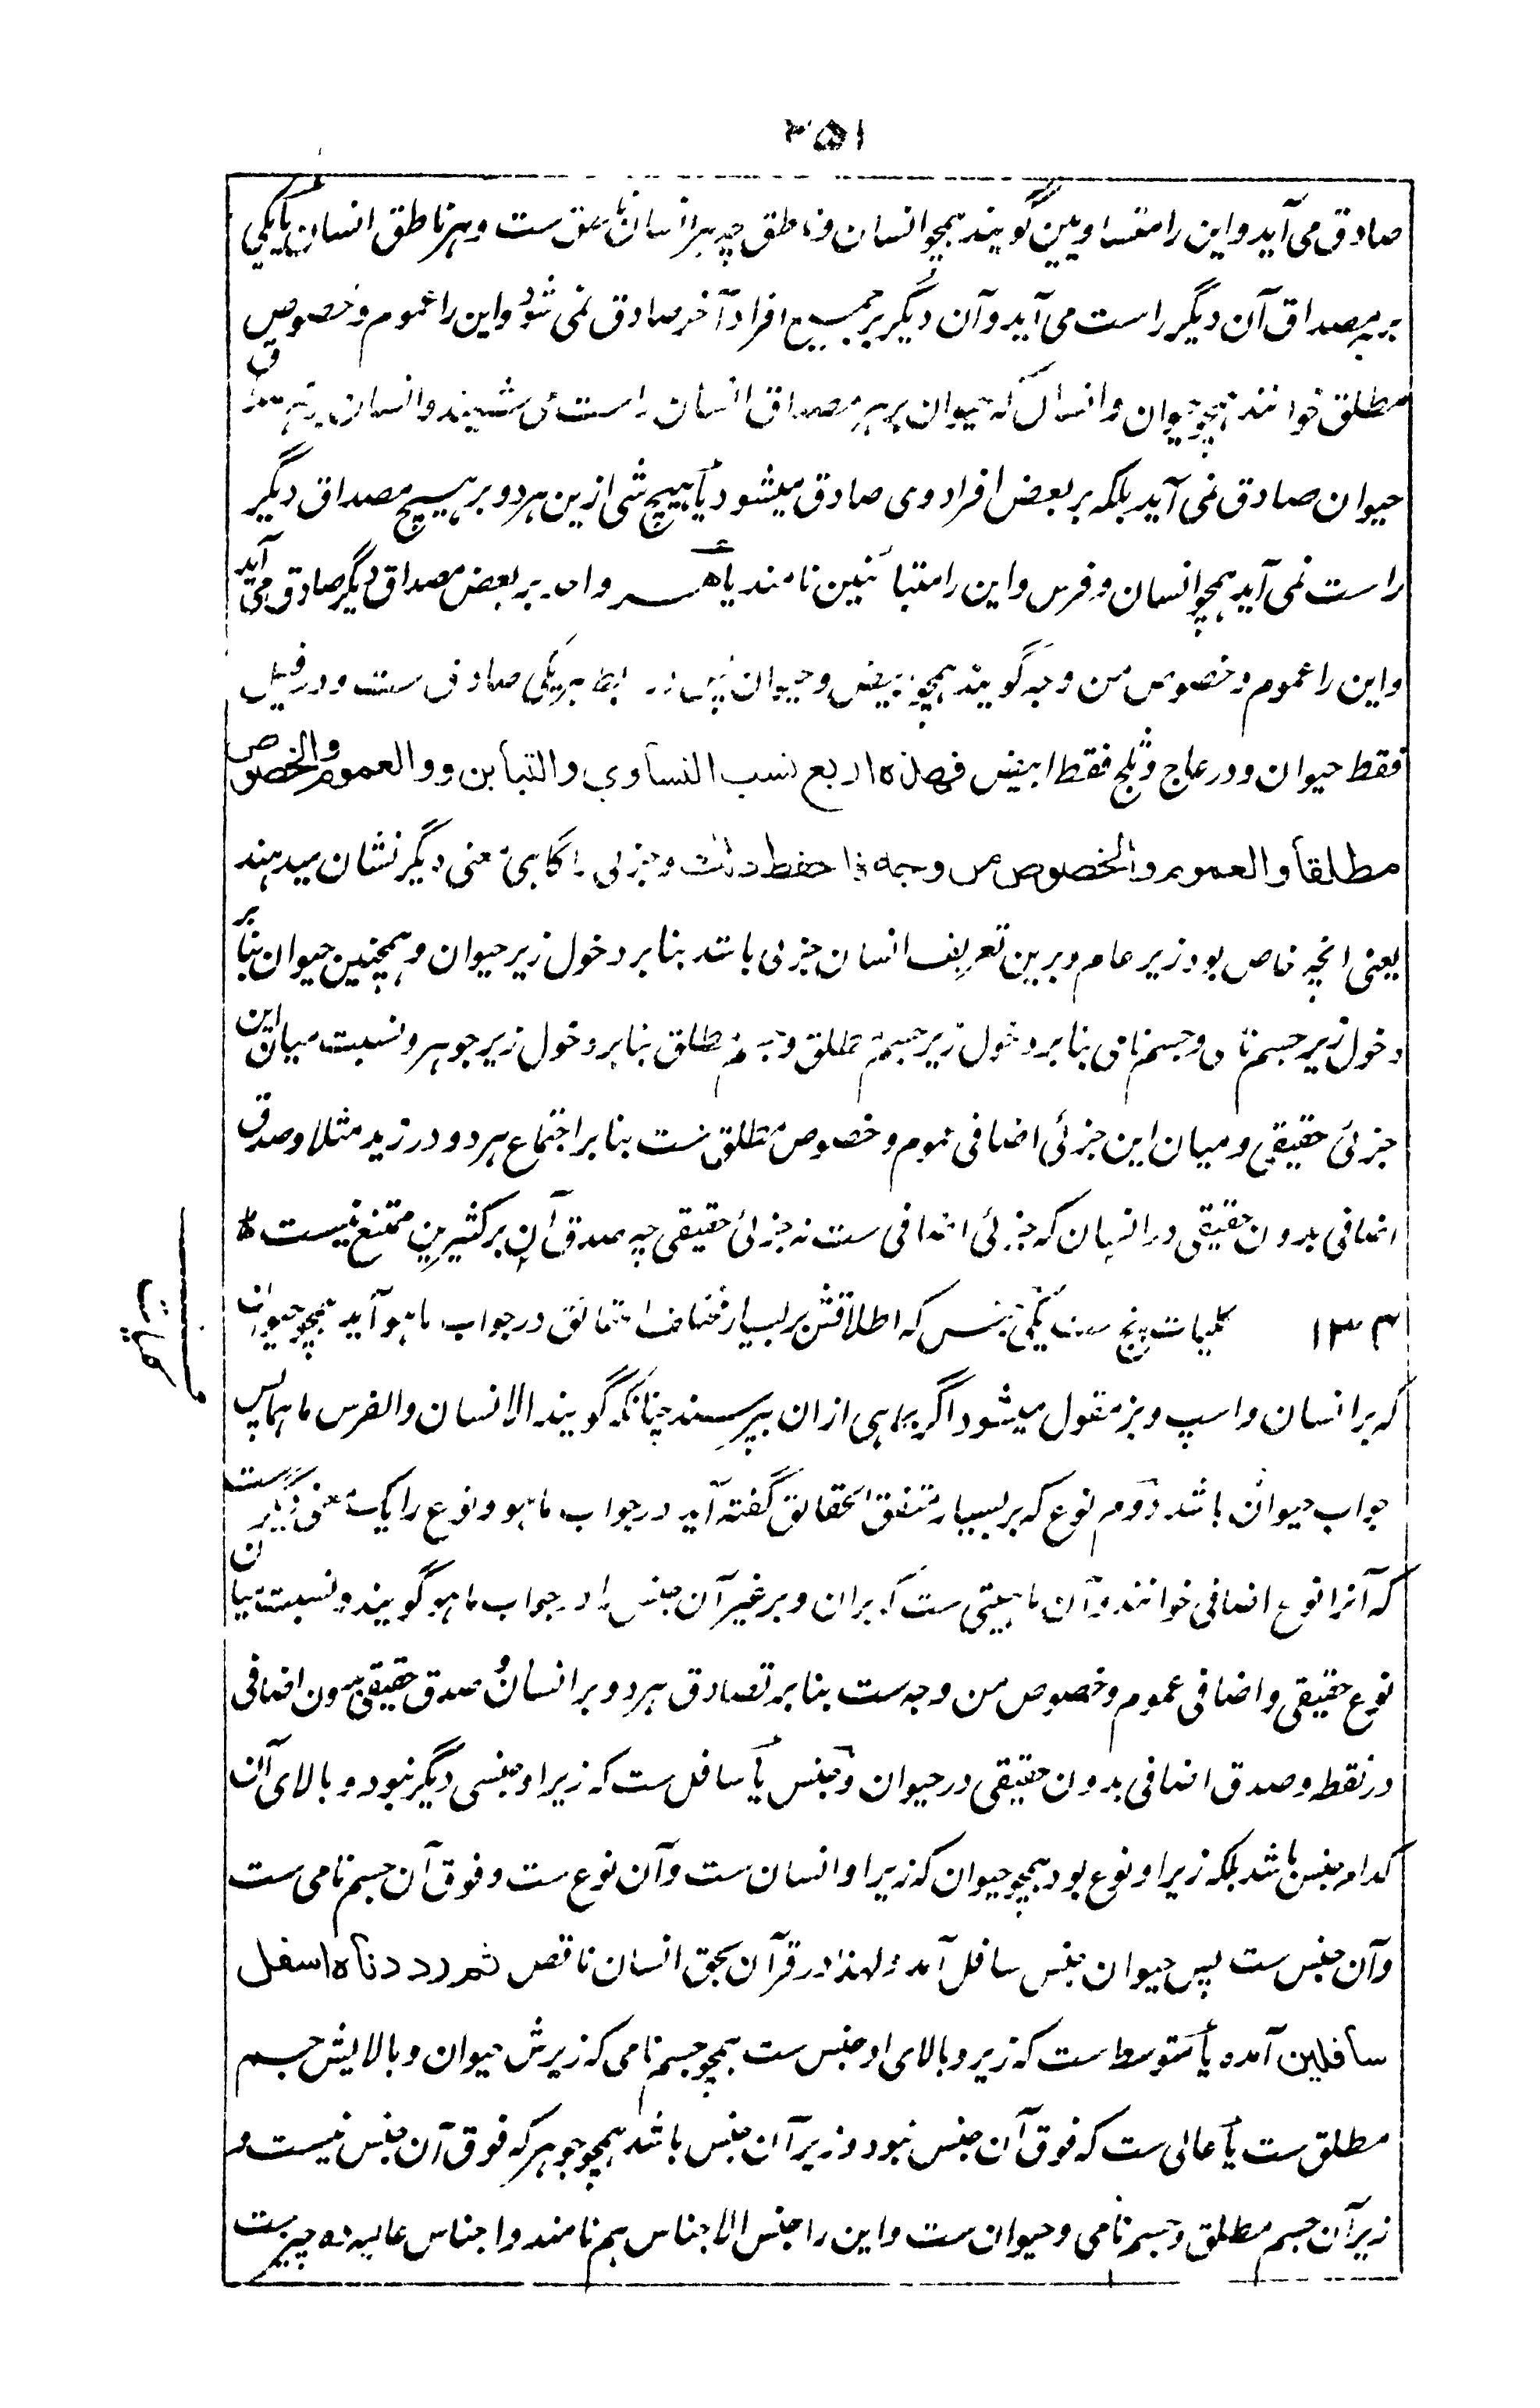 ۳۵۱
صادق می آید و این را متساویین گویند همچو انسان و ناطق چه هر انسان ناطق ست و هر ناطق انسان یا یکی
بر هر مصداق آن دیگر راست می آید و آن دیگر بر جمیع افراد آخر صادق نمی شود و این را عموم و خصوص
مطلق خوانند همچو حیوان و انسان که حیوان بر هر مصداق انسان راست می نشیند و انسان بر هر مصداق
حیوان صادق نمی آید بلکه بر بعض افراد وی صادق میشود یا هیچ شی ازین هر دو بر هیچ مصداق دیگر
راست نمی آید همچو انسان و فرس و این را متبائنین نامند یا هر واحد بر بعض مصداق دیگر صادق می آید
و این را عموم و خصوص من وجه گویند همچو ابیض و حیوان پس در بط هر یکی صادق ست و در فیل
فقط حیوان و در عاج و ثلج فقط ابیض فهذه اربع نسب التساوی والتباین و والعموم والخصوص
مطلقا والعموم والخصوص من وجه فاحفظ ذلک و جزئی را گاهی معنی دیگر نشان میدهند
یعنی انچه خاص بود زیر عام و برین تعریف انسان جزئی باشد بنابر دخول زیر حیوان و همچنین حیوان بنابر
دخول زیر جسم نامی و جسم نامی بنابر دخول زیر جسم مطلق و جسم مطلق بنابر دخول زیر جوهر و نسبت میان این
جزئی حقیقی و میان این جزئی اضافی عموم و خصوص مطلق ست بنابر اجتماع هر دو در زید مثلا و صدق
اضافی بدون حقیقی در انسان که جزئی اضافی ست نه جزئی حقیقی چه صدق آن بر کثیرین ممتنع نیست
کلیات
۱۳۴ کلیات پنج ست یکی جنس که اطلاقش بر بسیار مختلف الحقائق در جواب ماهو آید همچو حیوان
که بر انسان و اسپ و بز مقول میشود اگر بماهی ازان بپرسند چنانکه گویند الانسان والفرس ماهما پس
جواب حیوان باشد دوم نوع که بر بسیار متفق الحقائق گفته آید در جواب ماهو و نوع را یک معنی دیگرست
که آنرا نوع اضافی خوانند و آن ماهیتی ست که بران و بر غیر آن جنس را در جواب ماهو گویند و نسبت میان
نوع حقیقی و اضافی عموم و خصوص من وجه ست بنابر تصادق هر دو بر انسان و صدق حقیقی بدون اضافی
در نقطه و صدق اضافی بدون حقیقی در حیوان و جنس یا سافل ست که زیر او جنسی دیگر نبود و بالای آن
کدام جنس باشد بلکه زیر او نوع بود همچو حیوان که زیر او انسان ست و آن نوع ست و فوق آن جسم نامی ست
و آن جنس ست پس حیوان جنس سافل آمد و لهذا در قرآن بحق انسان ناقص ثم رددناه اسفل
سافلین آمده یا متوسط ست که زیر و بالای او جنس ست همچو جسم نامی که زیرش حیوان و بالایش جسم
مطلق ست یا عالی ست که فوق آن جنس نبود و زیر آن جنس باشد همچو جوهر که فوق آن جنس نیست و
زیر آن جسم مطلق و جسم نامی و حیوان ست و این را جنس الاجناس هم نامند و اجناس عالیه ده چیزست